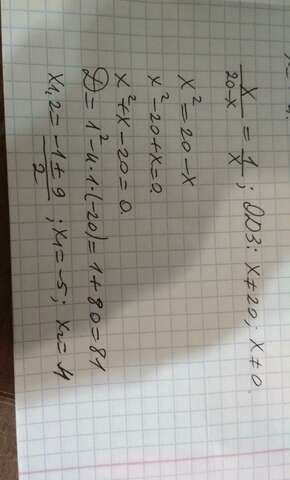 x/(20-x) = 1/x; ОДЗ: x≠20; x≠0.
x² = 20-x
x²-20+x=0
x²+x-20=0.
D = 1²-4·1·(-20)=1+80=81
x1,2 = (-1±9)/2; x1=-5; x2=4